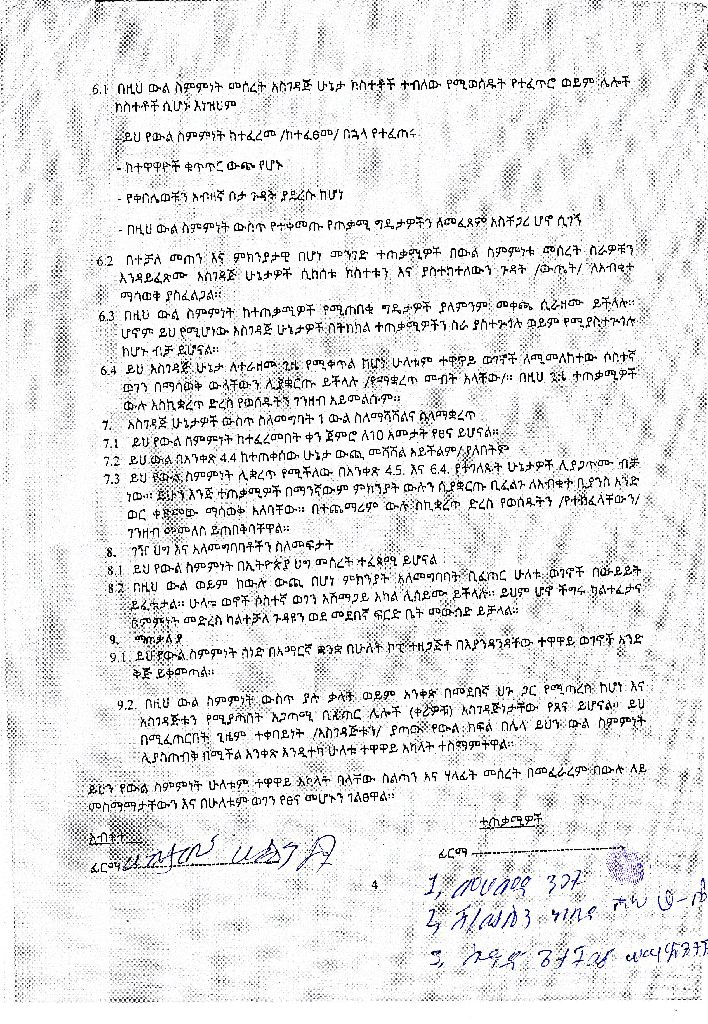 6.1 በዚህ ውል ስምምነት መሰረት አስገዳጅ ሁኔታ ክስተቶች ተብለው የሚወሰዱት የተፈጥሮ ወይም ሌሎች
ክስተቶች ሲሆኑ እነዝህም
- ይህ የውል ስምምነት ከተፈረመ /ከተፈፀመ/ በኋላ የተፈጠሩ
- ከተዋዋዮች ቁጥጥር ውጭ የሆኑ
- የቀበሌወቹን አብዛኛ ቦታ ጉዳት ያደረሱ ከሆነ
- በዚህ ውል ስምምነት ውስጥ የተቀመጡ የጠቃሚ ግዴታዎችን ለመፈጸም አስቸጋሪ ሆኖ ሲገኝ
6.2 በተቻለ መጠን እና ምክንያታዊ በሆነ መንገድ ተጠቃሚዎች በውል ስምምነቱ መሰረት ስራዎቹን
እንዳይፈጽሙ አስገዳጅ ሁኔታዎች ሲከሰቱ ክስተቱን እና ያስከተለውን ጉዳት /ውጤት/ ለአብቁተ
ማሳወቅ ያስፈልጋል።
6.3 በዚህ ውል ስምምነት ከተጠቃሚዎች የሚጠበቁ ግዴታዎች ያለምንም መቀጫ ሲራዘሙ ይችላሉ።
ሆኖም ይህ የሚሆነው አስገዳጅ ሁኔታዎች በትክክል ተጠቃሚዎችን ስራ ያስተጓጎሉ ወይም የሚያስታጉጎሉ
ከሆኑ ብቻ ይሆናል።
6.4 ይህ አስገዳጅ ሁኔታ ለተራዘመ ጊዜ የሚቀጥል ከሆነ ሁለቱም ተዋዋይ ወገኖች ለሚመለከተው ሶስተኛ
ወገን በማሳወቅ ውላቸውን ሊያቋርጡ ይችላሉ /የማቋረጥ መብት አላቸው/። በዚህ ጊዜ ተጠቃሚዎች
ውሉ እስኪቋረጥ ድረስ የወሰዱትን ገንዘብ አይመልሱም።
7. አስገዳጅ ሁኔታዎች ውስጥ ስለመግባት 1 ውል ስለማሻሻልና ስለማቋረጥ
7.1 ይህ የውል ስምምነት ከተፈረመበት ቀን ጀምሮ ለ10 አመታት የፀና ይሆናል።
7.2 ይህ ውል በአንቀጽ 4.4 ከተጠቀሰው ሁኔታ ውጪ መሻሻል አይችልም/ የለበትም
7.3 ይህ የውል ስምምነት ሊቋረጥ የሚችለው በአንቀጽ 4.5. እና 6.4. የተገለጹት ሁኔታዎች ሊያጋጥሙ ብቻ
ነው። ይሁን እንጅ ተጠቃሚዎች በማንኛውም ምክንያት ውሉን ሲያቋርጡ ቢፈልጉ ለአብቁተ ቢያንስ አንድ
ወር ቀድመው ማሳወቅ አለባቸው። በተጨማሪም ውሉ ስኪቋረጥ ድረስ የወሰዱትን /የተከፈላቸውን/
ገንዘብ መመለስ ይጠበቅባቸዋል።
8. ገዥ ህግ እና አለመግባባቶችን ስለመፍታት
8.1 ይህ የውል ስምምነት በኢትዮጵያ ህግ መሰረት ተፈጻሚ ይሆናል
8.2 በዚህ ውል ወይም ከውሉ ውጪ በሆነ ምክንያት አለመግባባት ቢፈጠር ሁለቱ ወገኖች በውይይት
ይፈቱታል። ሁለቱ ወኖች ሶስተኛ ወገን አሸማጋይ አካል ሊሰይሙ ይችላሉ። ይህም ሆኖ ችግሩ ካልተፈታና
ስምምነት መድረስ ካልተቻለ ጉዳዩን ወደ መደበኛ ፍርድ ቤት መውሰድ ይቻላል።
9. ማጠቃለያ
9.1. ይህ የውል ስምምነት ሰነድ በአማርኛ ቋንቋ በሁለት ኮፒ ተዘጋጅቶ በእያንዳንዳቸው ተዋዋይ ወገኖች አንድ
ቅጅ ይቀመጣል።
9.2. በዚህ ውል ስምምነት ውስጥ ያሉ ቃላት ወይም አንቀጽ በመደበኛ ህጉ ጋር የሚጣረስ ከሆነ እና
አስገዳጅቱን የሚያጣበት አጋጣሚ ቢፈጠር ሌሎች (ቀሪዎቹ) አስገዳጅነታቸው የጸና ይሆናል። ይህ
በሚፈጠርበት ጊዜም ተቀባይነት /አስገዳጅቱን/ ያጣው የውል ክፍል በሌላ ይህን ውል ስምምነት
ሊያስጠብቅ በሚችል አንቀጽ እንዲተካ ሁለቱ ተዋዋይ አካላት ተስማምትዋል።
ይህን የውል ስምምነት ሁለቱም ተዋዋይ አካላት ባላቸው ስልጣን እና ሃላፊት መሰረት በመፈራረም በውሉ ላይ
መስማማታቸውን እና በሁለቱም ወገን የፀና መሆኑን ገልፀዋል።
ተጠቃሚዎች
አብቁተ
ፊርማ
ፊርማ
4
1,
2,
3,